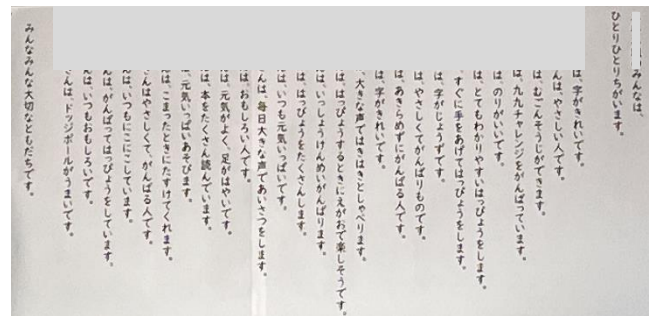 みんなは、
ひとりひとりちがいます。
は、字がきれいです。
んは、やさしい人です。
はむごんそうじができます。
は、九九チャレンジをがんばっています。
は、のりがいいです。
はとてもわかりやすいはっぴょうをします。
、すぐに手をあげてはっぴょうをします。
は、字がじょうずです。
はやさしくてがんばりものです。
は、あきらめずにがんばる人です。
は、字がきれいです。
、大きな声ではきはきとしゃべります。
ははっぴょうするときにえがおで楽しそうです。
は、いっしょうけんめいがんばります。
は、はっぴょうをたくさんします。
は、いつも元気いっぱいです。
さんは、毎日大きな声であいさつをします。
はおもしろい人です。
んは、元気がよく、足がはやいです。
は、本をたくさん読んでいます。
、元気いっぱいあそびます。
は、こまったときにたすけてくれます。
さんはやさしくて、がんばる人です。
んは、いつもにこにこしています。
んは、がんばってはっぴょうをしています。
んは、いつもおもしろいです。
さんは、ドッジボールがうまいです。
みんなみんな大切なともだちです。